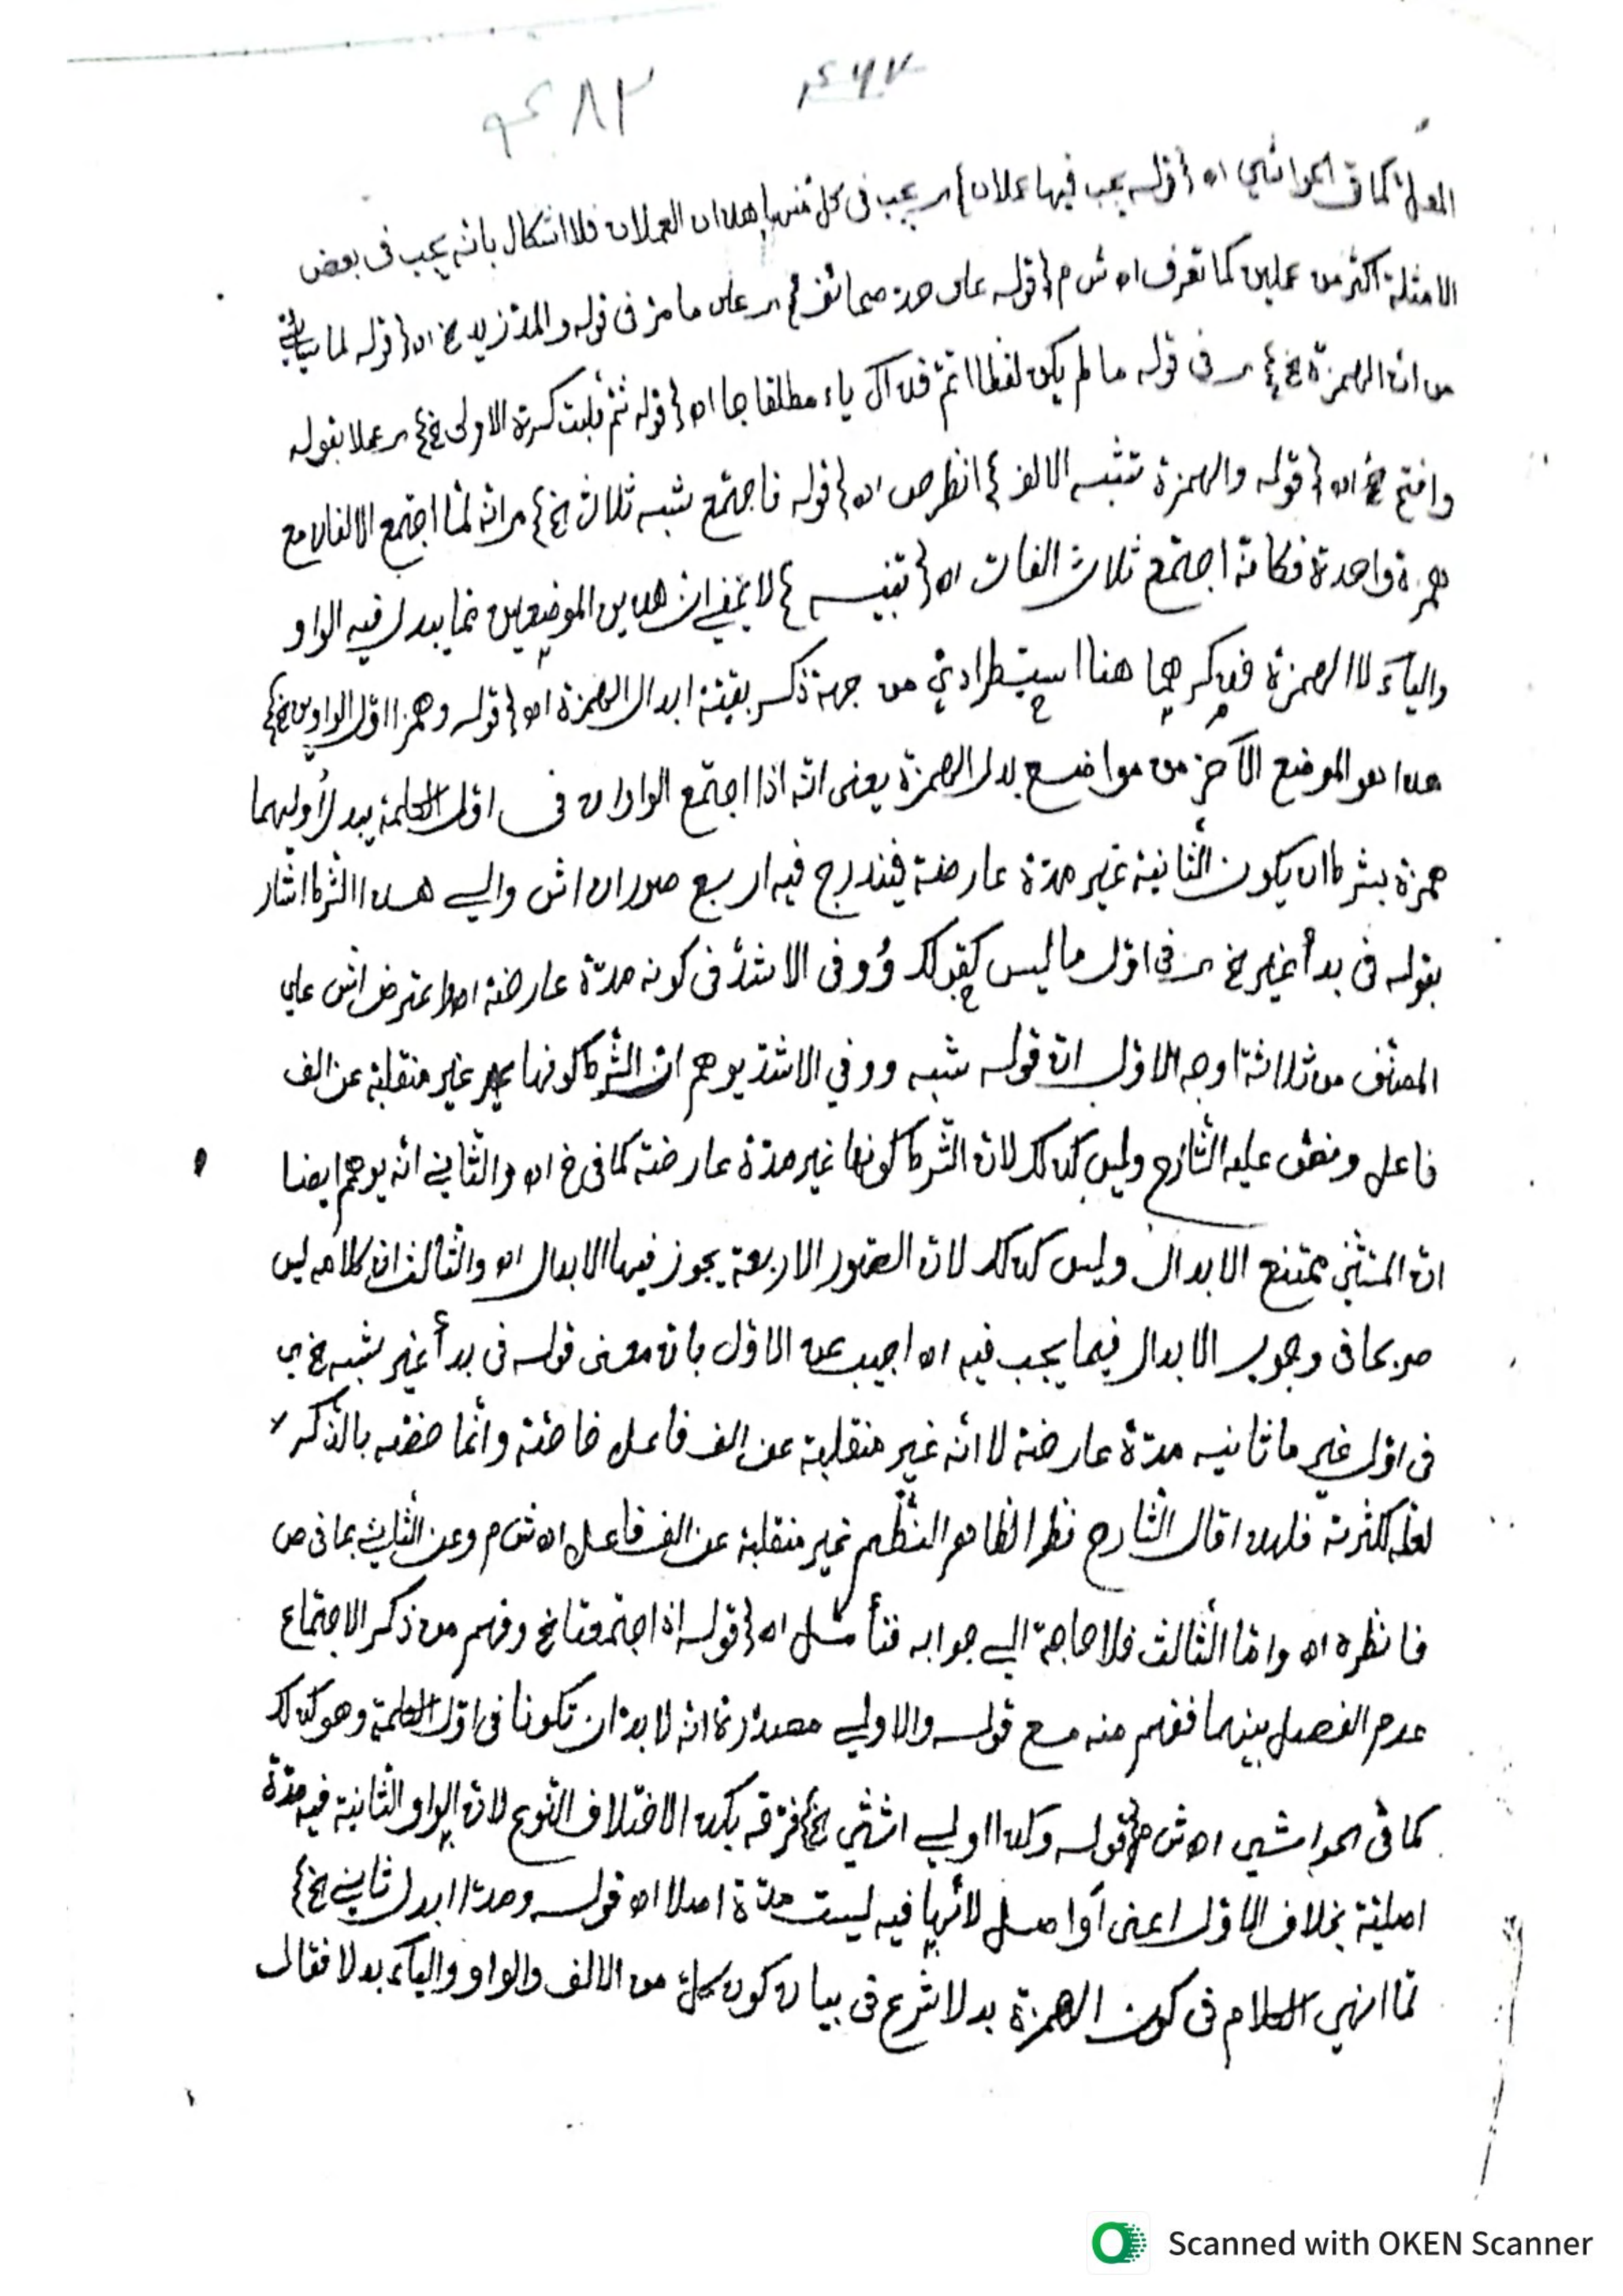 ٤٦٧
٤٨٣
كما في الحواشي اه {قوله يجب فيها عملان} اي يجب في كل منها هذان العملان فلا اشكال بانه يجب في بعض
الامثلة اكثر من عملين كما تعرف اه ش م {قوله على حد صحائف} اي على ما مر في قوله والمد زيد الخ اه {قوله لما سيأتي
من ان الهمزة الخ} اي في قوله ما لم يكن لفظا اتم فذاك ياء مطلقا جا اه {قوله ثم قلبت كسرة الاولى الخ} اي عملا بقوله
وافتح الخ اه {قوله والهمزة تشبه الالف} انظر ص اه {قوله فاجتمع شبه ثلاث الخ} اي انه لما اجتمع الالفان مع
همزة واحدة فكأنه اجتمع ثلاث الفات اه {تنبيه} لا يخفى ان هذين الموضعين مما يبدل فيه الواو
والياء لا الهمزة فذكرهما هنا استطرادي من جهة ذكر بقية ابدال الهمزة اه {قوله وهمزا اول الواوين الخ}
هذا هو الموضع الآخر من مواضع بدل الهمزة يعني انه اذا اجتمع الواوان في اول الكلمة يبدل أوليهما
همزة بشرط ان يكون الثانية غير مدة عارضة فيندرج فيه اربع صور اه اش والى هذا الشرط اشار
بقوله في بدأ غير الخ اي في اول ما ليس كقولك وُوفى الاشد في كونه مدة عارضة اه واعترض اش على
المصنف من ثلاثة اوجه الاول ان قوله شبه ووفي الاشد يوهم ان الشرط كونها غير منقلبة عن الف
فاعل ونص عليه الشارح وليس كذلك لان الشرط كونها غير مدة عارضة كما في خ اه والثاني انه يوهم ايضا
ان المستثنى ممتنع الابدال وليس كذلك لان الصور الاربعة يجوز فيها الابدال اه والثالث ان كلامه ليس
صريحا في وجوب الابدال فيما يجب فيه اه اجيب عن الاول بان معنى قوله في بدأ غير شبه الخ اي
في اول غير ما ثانيه مدة عارضة لا انه غير منقلبة عن الف فاعل خاصة وانما خصه بالذكر
لعله لكثرته فلهذا قال الشارح نظرا لظاهر النظم غير منقلبة عن الف فاعل اه ش م وعن الثاني بما في ص
فانظره اه واما الثالث فلا حاجة الى جوابه فتأمل اه {قوله اذا اجتمعتا الخ وفهم من ذكر الاجتماع
عدم الفصل بينهما ففهم منه مع قوله والاولى مصدرة انه لا بد ان تكونا في اول الكلمة وهو كذلك
كما في الحواشي اه ش م {قوله وكذا اولى انثى الخ} فرقه بكذا لاختلاف النوع لان الواو الثانية فيه مدة
اصلية بخلاف الاول اعني أواصل لأنها فيه ليست مدة اصلا اه قوله ومدا ابدل ثاني الخ}
لما انهى الكلام في كون الهمزة بدلا شرع في بيان كون كل من الالف والواو والياء بدلا فقال
Scanned with OKEN Scanner